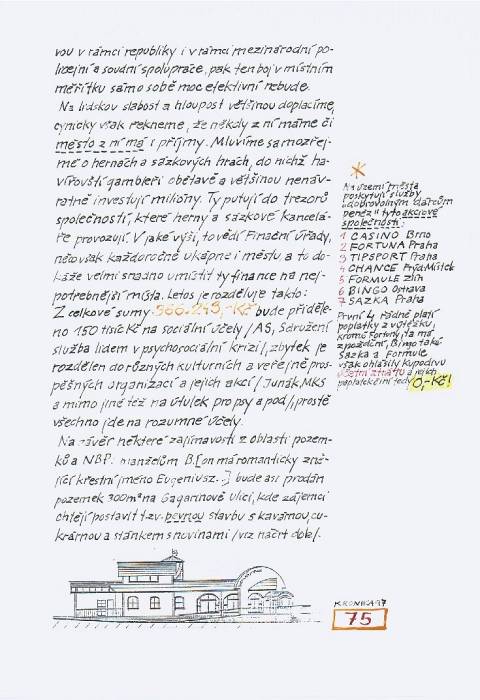 vou v rámci republiky i v rámci mezinárodní po-
licejní a soudní spolupráce, pak ten boj v místním
měřítku samo sobě moc efektivní nebude.
Na lidskou slabost a hloupost většinou doplácíme,
cynicky však řekneme, že někdy z ní máme či
město z ní má i příjmy. Mluvíme samozřej-
mě o hernách a sázkových hrách, do nichž ha-
vířovští gambleři obětavě a většinou nenáv-
ratně investují milióny. Ty putují do trezorů
společností, které herny a sázkové kancelá-
ře provozují. V jaké výši, to vědí Finační úřady,
něco však každoročně ukápne i městu, a to do-
káže velmi snadno umístit ty finance na nej-
potřebnější místa. Letos je rozděluje takto:
Z celkové sumy 566.249,-Kč bude přiděle-
no 150 tisíc Kč na sociální účely /AS, sdružení
služba lidem v psychosociální krizi/, zbytek je
rozdělen do různých kulturních a veřejně pros-
pěšných organizací a jejich akcí / Junák, MKS
a mimo jiné též na útulek pro psy a pod/, prostě
všechno jde na rozumné účely.
Na závěr některé zajímavosti z oblasti pozem-
ků a NBP: manželům B. [on má romanticky zně-
jící křestní jméno Eugeniusz...] bude asi prodán
pozemek 300m² na Gagarinově ulici, kde zájemci
chtějí postavit tzv. pevnou stavbu s kavárnou, cu-
krárnou a stánkem s novinami /viz náčrt dole/.
*
Na území města
poskytují služby
dobrovolným dárcům
peněz tyto akciové
společnosti:
1 CASINO Brno
2 FORTUNA Praha
3 TIPSPORT Praha
4 CHANCE Frýd.Místek
5 FORMULE Zlín
6 BINGO Ostrava
7 SAZKA Praha
První 4 řádně platí
poplatky z výtěžku,
kromě Fortuny, ta má
zpoždění, Bingo také
Sazka a Formule
však ohlásily kupodivu
účetní ztrátu a jejich
poplatek činí tedy 0,-Kč!
KRONIKA 97
75